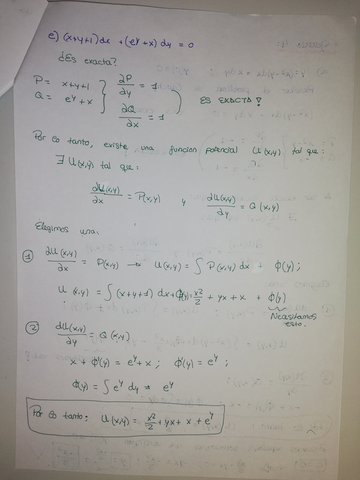 e) (x+y+1)dx + (e^y + x) dy = 0
¿Es exacta?
P = x+y+1 } ∂P/∂y = 1
Q = e^y + x } ∂Q/∂x = 1 } ES EXACTA!
Por lo tanto, existe una funcion potencial U(x,y) tal que:
∃ U(x,y) tal que:
∂U(x,y)/∂x = P(x,y) y ∂U(x,y)/∂y = Q(x,y)
Elegimos una:
① ∂U(x,y)/∂x = P(x,y) → U(x,y) = ∫ P(x,y) dx + ϕ(y);
U(x,y) = ∫ (x+y+1) dx + ϕ(y) = x²/2 + yx + x + ϕ(y)
Necesitamos
esto.
② ∂U(x,y)/∂y = Q(x,y)
x + ϕ'(y) = e^y + x ; ϕ'(y) = e^y ;
ϕ(y) = ∫ e^y dy = e^y
Por lo tanto: U(x,y) = x²/2 + yx + x + e^y